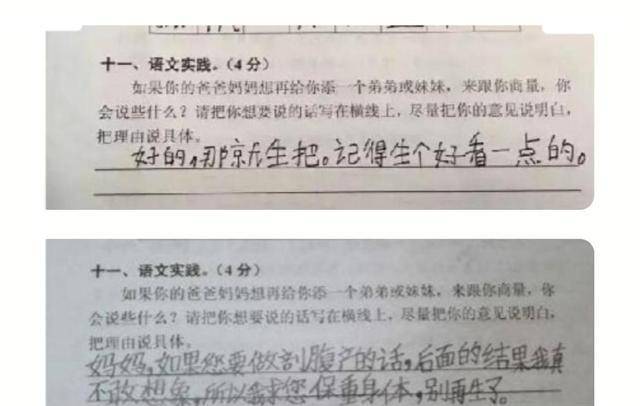 十一、语文实践。(4分)
如果你的爸爸妈妈想再给你添一个弟弟或妹妹，来跟你商量，你
会说些什么？请把你想要说的话写在横线上，尽量把你的意见说明白，
把理由说具体。
好的，那就生把。记得生个好看一点的。
十一、语文实践。(4分)
如果你的爸爸妈妈想再给你添一个弟弟或妹妹，来跟你商量，你
会说些什么？请把你想要说的话写在横线上，尽量把你的意见说明白，
把理由说具体。
妈妈，如果您要做剖腹产的话，后面的结果我真
不敢想象，所以我求您保重身体，别再生了。